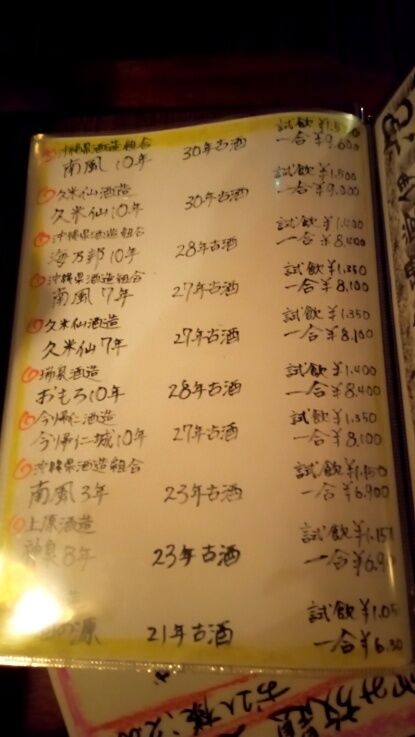 沖縄県酒造組合
南風 10年 30年古酒 試飲
一合¥9,600
久米仙酒造
久米仙10年 30年古酒 試飲¥1,500
一合¥9,000
沖縄県酒造組合
海乃邦10年 28年古酒 試飲¥1,400
一合¥8,400
沖縄県酒造組合
南風 7年 27年古酒 試飲¥1,350
一合¥8,100
久米仙酒造
久米仙7年 27年古酒 試飲¥1,350
一合¥8,100
瑞泉酒造
おもろ10年 28年古酒 試飲¥1,400
一合¥8,400
今帰仁酒造
今帰仁城10年 27年古酒 試飲¥1,350
一合¥8,100
沖縄県酒造組合
南風3年 23年古酒 試飲¥1,150
一合¥6,900
上原酒造
神泉8年 23年古酒 試飲
一合
源 21年古酒 試飲
一合